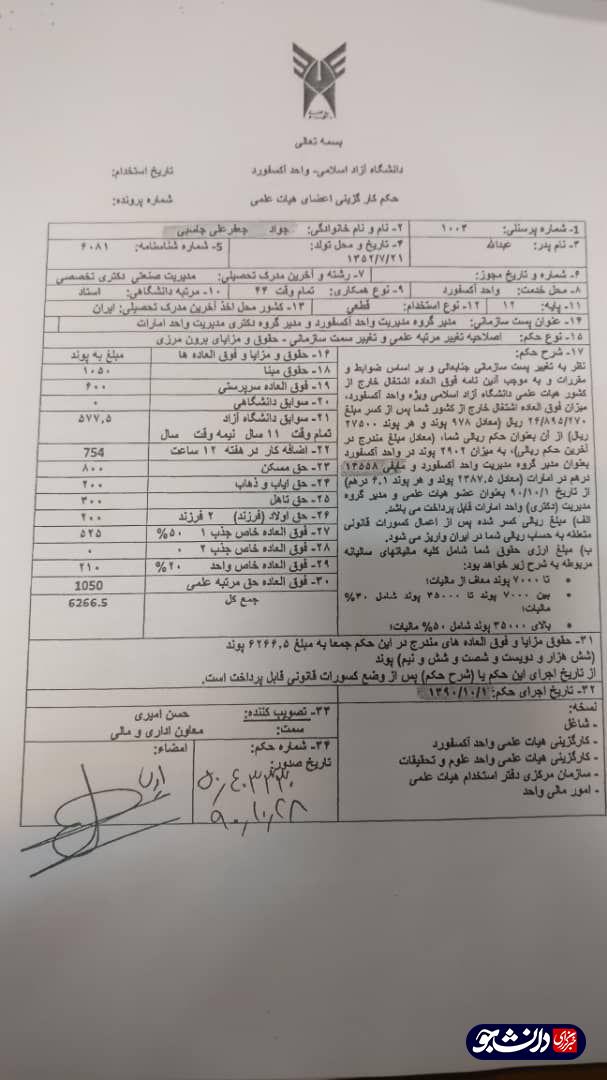 بسمه تعالی
دانشگاه آزاد اسلامی- واحد آکسفورد
تاریخ استخدام:
حکم کار گزینی اعضای هیات علمی
شماره پرونده:
1- شماره پرسنلی: ۱۰۰۳
۲- نام و نام خانوادگی: جواد جعفرعلی جاسبی
۳- نام پدر: عبدالله
۴- تاریخ و محل تولد: ۱۳۵۲/۷/۲۱
5- شماره شناسنامه: ۶۰۸۱
۶- شماره و تاریخ مجوز:
۷- رشته و آخرین مدرک تحصیلی: مدیریت صنعتی دکتری تخصصی
۸- محل خدمت: واحد آکسفورد
۹- نوع همکاری: تمام وقت ۴۴
۱۰- مرتبه دانشگاهی: استاد
۱۱- پایه: ۱۲
۱۲- نوع استخدام: قطعی
۱۳- کشور محل اخذ آخرین مدرک تحصیلی: ایران
۱۴- عنوان پست سازمانی: مدیر گروه مدیریت واحد آکسفورد و مدیر گروه دکتری مدیریت واحد امارات
۱۵- نوع حکم: اصلاحیه تغییر مرتبه علمی و تغییر سمت سازمانی - حقوق و مزایای برون مرزی
۱۷- شرح حکم:
نظر به تغییر پست سازمانی جنابعالی و بر اساس ضوابط و
مقررات و به موجب آئین نامه فوق العاده اشتغال خارج از
کشور هیات علمی دانشگاه آزاد اسلامی ویژه واحد آکسفورد،
میزان فوق العاده اشتغال خارج از کشور شما پس از کسر مبلغ
۲۶/۸۹۵/۲۷۰ ریال (معادل ۹۷۸ پوند و هر پوند ۲۷۵۰۰
ریال) از آن بعنوان حکم ریالی شما، (معادل مبلغ مندرج در
آخرین حکم ریالی)، به میزان ۲۹۰۲ پوند در واحد آکسفورد
بعنوان مدیر گروه مدیریت واحد آکسفورد و مابقی ۱۳۵۵۸
درهم در امارات (معادل ۲۳۸۷.۵ پوند و هر پوند ۶.۱ درهم)
از تاریخ ۹۰/۱۰/۱ بعنوان عضو هیات علمی و مدیر گروه
مدیریت (دکتری) واحد امارات قابل پرداخت می باشد.
الف) مبلغ ریالی کسر شده پس از اعمال کسورات قانونی
متعلقه به حساب ریالی شما در ایران واریز می شود.
ب) مبلغ ارزی حقوق شما شامل کلیه مالیاتهای سالیانه
مربوطه به شرح زیر خواهد بود:
• تا ۷۰۰۰ پوند معاف از مالیات؛
• بین ۷۰۰۰ پوند تا ۳۵۰۰۰ پوند شامل ۳۰%
مالیات؛
• بالای ۳۵۰۰۰ پوند شامل ۵۰% مالیات؛
۱۶- حقوق و مزایا و فوق العاده ها مبلغ به پوند
۱۸- حقوق مبنا ۱۰۵۰
۱۹- فوق العاده سرپرستی ۶۰۰
۲۰- سوابق دانشگاهی ۰
۲۱- سوابق دانشگاه آزاد ۵۷۷,۵
تمام وقت ۱۱ سال نیمه وقت سال
۲۲- اضافه کار در هفته ۱۲ ساعت 754
۲۳- حق مسکن ۸۰۰
۲۴- حق ایاب و ذهاب ۲۰۰
۲۵- حق تاهل ۳۰۰
۲۶- حق اولاد (فرزند) ۲ فرزند ۲۰۰
۲۷- فوق العاده خاص جذب ۱ ۵۰% ۵۲۵
۲۸- فوق العاده خاص جذب ۲ ۰ ۰
۲۹- فوق العاده خاص واحد ۲۰% ۲۱۰
۳۰- فوق العاده حق مرتبه علمی 1050
جمع کل 6266.5
۳۱- حقوق مزایا و فوق العاده های مندرج در این حکم جمعا به مبلغ ۶۲۶۶,۵ پوند
(شش هزار و دویست و شصت و شش و نیم) پوند
از تاریخ اجرای این حکم یا (شرح حکم) پس از وضع کسورات قانونی قابل پرداخت است.
۳۲- تاریخ اجرای حکم: ۱۳۹۰/۱۰/۱
نسخه:
- شاغل
- کارگزینی هیات علمی واحد آکسفورد
- کارگزینی هیات علمی واحد علوم و تحقیقات
- سازمان مرکزی دفتر استخدام هیات علمی
- امور مالی واحد
۳۳- تصویب کننده: حسن امیری
سمت: معاون اداری و مالی
۳۴- شماره حکم:
تاریخ صدور:
۹۰,۱۰,۲۸
امضاء:
خبرگزاری دانشجو